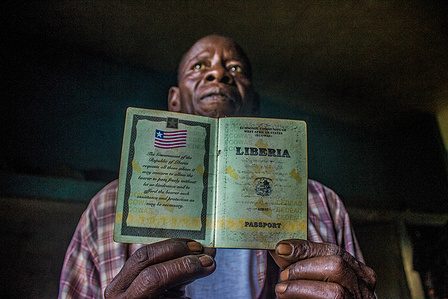 The Government of the
Republic of Liberia
requests all those whom it
may concern to allow the
bearer to pass freely without
let or hindrance and to
afford the bearer every
assistance and protection as
may be necessary
ECONOMIC COMMUNITY OF
WEST AFRICAN STATES
(ECOWAS)
LIBERIA
PASSPORT